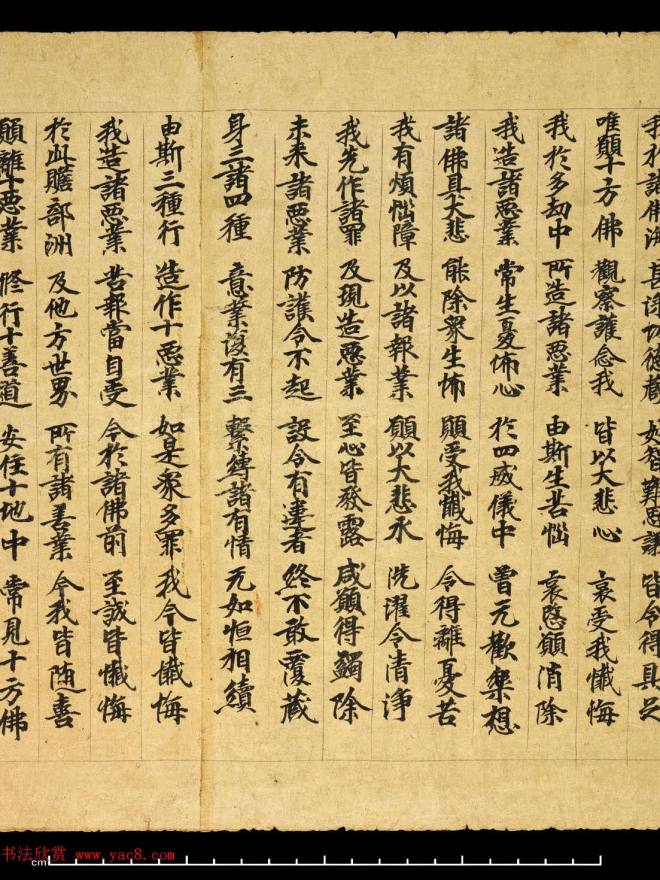 我於諸佛海　甚深功德藏　妙智難思議　皆令得具足
唯願十方佛　觀察護念我　皆以大悲心　哀受我懺悔
我於多劫中　所造諸惡業　由斯生苦惱　哀愍願消除
我造諸惡業　常生憂怖心　於四威儀中　曾无歡樂想
諸佛具大悲　能除衆生怖　願受我懺悔　令得離憂苦
我有煩惱障　及以諸報業　願以大悲水　洗濯令清淨
我先作諸罪　及現造惡業　至心皆發露　咸願得蠲除
未來諸惡業　防護令不起　設令有違者　終不敢覆藏
身三語四種　意業復有三　繫縛諸有情　无始恒相續
由斯三種行　造作十惡業　如是衆多罪　我今皆懺悔
我造諸惡業　苦報當自受　今於諸佛前　至誠皆懺悔
於此贍部洲　及他方世界　所有諸善業　今我皆隨喜
願離十惡業　修行十善道　安住十地中　常見十方佛
书法欣赏 www.yac8.com
cm